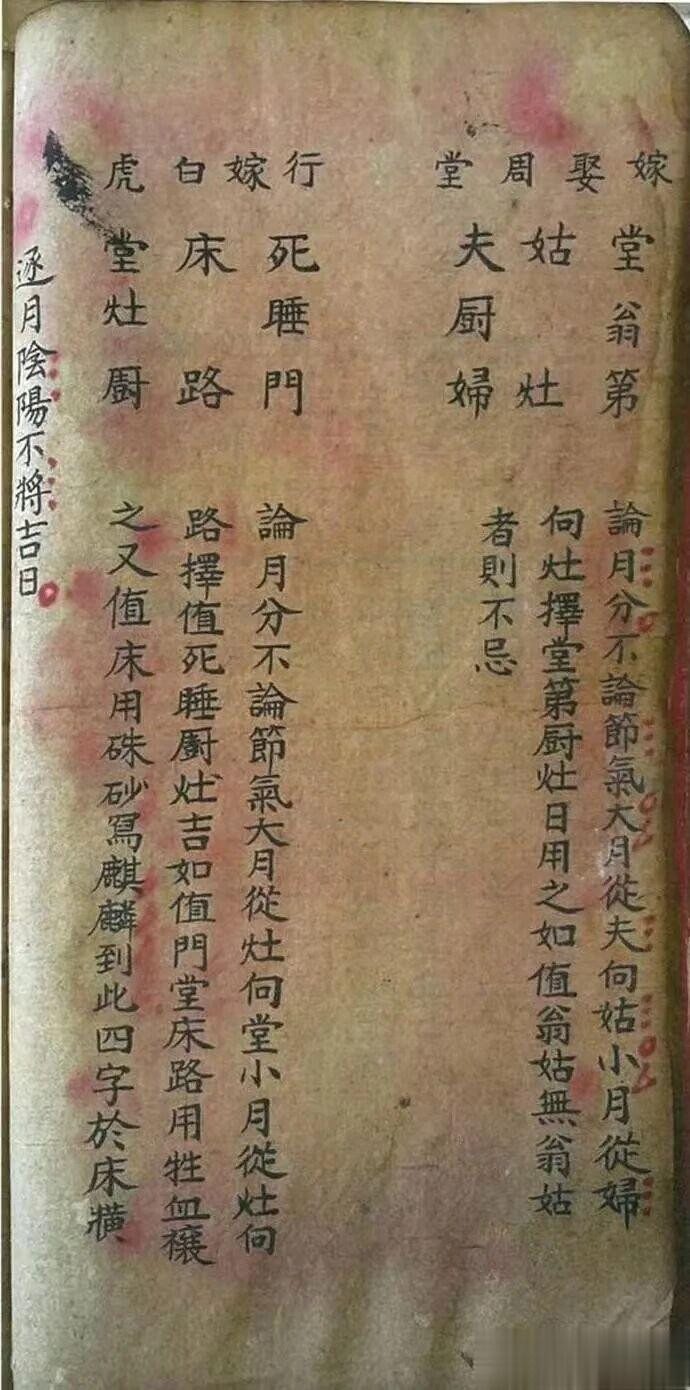 嫁娶周堂
堂翁第
姑灶
夫厨婦
論月分不論節氣大月從夫向姑小月從婦
向灶擇堂第厨灶日用之如值翁姑無翁姑
者則不忌
行嫁白虎
死睡門
床路
堂灶厨
論月分不論節氣大月從灶向堂小月從灶向
路擇值死睡厨灶吉如值門堂床路用牲血禳
之又值床用硃砂寫麒麟到此四字於床橫
逐月陰陽不將吉日